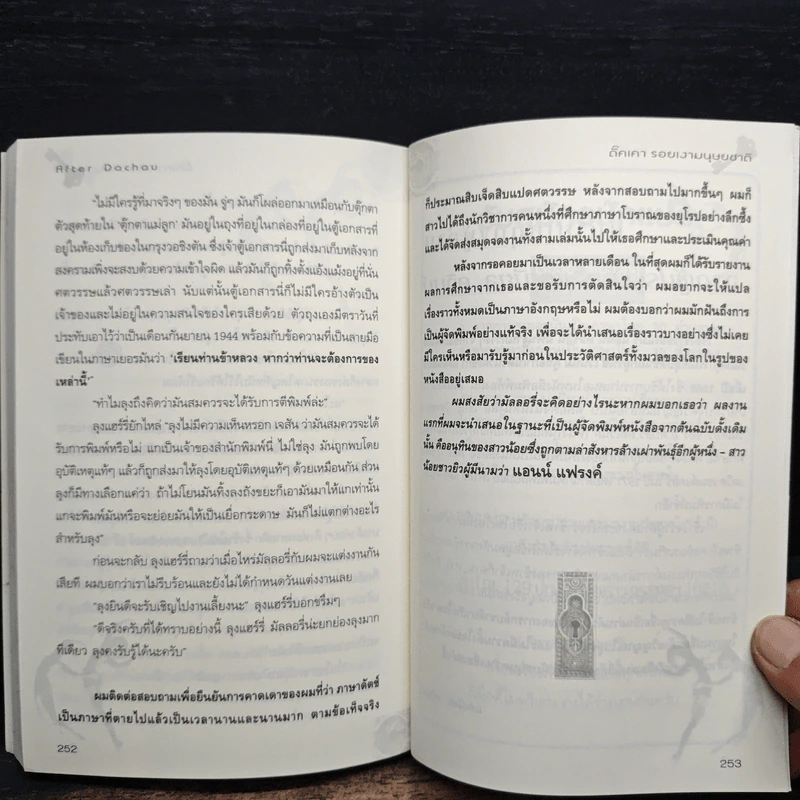 After Dachau
"ไม่มีใครรู้ที่มาจริงๆ ของมัน จู่ๆ มันก็โผล่ออกมาเหมือนกับตุ๊กตา
ตัวสุดท้ายใน 'ตุ๊กตาแม่ลูก' มันอยู่ในถุงที่อยู่ในกล่องที่อยู่ในตู้เอกสารที่
อยู่ในห้องเก็บของในกรุงวอชิงตัน ซึ่งเจ้าตู้เอกสารนี่ถูกส่งมาเก็บหลังจาก
สงครามเพิ่งจะสงบด้วยความเข้าใจผิด แล้วมันก็ถูกทิ้งตั้งแอ้งแม้งอยู่ที่นั่น
ศตวรรษแล้วศตวรรษเล่า นับแต่นั้นตู้เอกสารนี่ก็ไม่มีใครอ้างตัวเป็น
เจ้าของและไม่อยู่ในความสนใจของใครเสียด้วย ตัวถุงเองมีตราวันที่
ประทับเอาไว้ว่าเป็นเดือนกันยายน 1944 พร้อมกับข้อความที่เป็นลายมือ
เขียนในภาษาเยอรมันว่า 'เรียนท่านข้าหลวง หากว่าท่านจะต้องการของ
เหล่านี้'"
"ทำไมลุงถึงคิดว่ามันสมควรจะได้รับการตีพิมพ์ล่ะ"
ลุงแฮร์รี่ยักไหล่ "ลุงไม่มีความเห็นหรอก เจสัน ว่ามันสมควรจะได้
รับการพิมพ์หรือไม่ แกเป็นเจ้าของสำนักพิมพ์นี่ ไม่ใช่ลุง มันถูกพบโดย
อุบัติเหตุแท้ๆ แล้วก็ถูกส่งมาให้ลุงโดยอุบัติเหตุแท้ๆ ด้วยเหมือนกัน ส่วน
ลุงก็มีทางเลือกแค่ว่า ถ้าไม่โยนมันทิ้งลงถังขยะก็เอามันมาให้แกเท่านั้น
แกจะพิมพ์มันหรือจะย่อยมันให้เป็นเยื่อกระดาษ มันก็ไม่แตกต่างอะไร
สำหรับลุง"
ก่อนจะกลับ ลุงแฮร์รี่ถามว่าเมื่อไหร่มัลลอรี่กับผมจะแต่งงานกัน
เสียที ผมบอกว่าเราไม่รีบร้อนและยังไม่ได้กำหนดวันแต่งงานเลย
"ลุงยินดีจะรับเชิญไปงานเลี้ยงนะ" ลุงแฮร์รี่บอกขรึมๆ
"ดีจริงครับที่ได้ทราบอย่างนี้ ลุงแฮร์รี่ มัลลอรี่น่ะยกย่องลุงมาก
ทีเดียว ลุงคงรับรู้ได้นะครับ"
ผมติดต่อสอบถามเพื่อยืนยันการคาดเดาของผมที่ว่า ภาษาดัตช์
เป็นภาษาที่ตายไปแล้วเป็นเวลานานและนานมาก ตามข้อเท็จจริง
252
ดั๊คเคา รอยเงามนุษยชาติ
ก็ประมาณสิบเจ็ดสิบแปดศตวรรษ หลังจากสอบถามไปมากขึ้นๆ ผมก็
สาวไปได้ถึงนักวิชาการคนหนึ่งที่ศึกษาภาษาโบราณของยุโรปอย่างลึกซึ้ง
และได้จัดส่งสมุดจดงานทั้งสามเล่มนั้นไปให้เธอศึกษาและประเมินคุณค่า
หลังจากรอคอยมาเป็นเวลาหลายเดือน ในที่สุดผมก็ได้รับรายงาน
ผลการศึกษาจากเธอและขอรับการตัดสินใจว่า ผมอยากจะให้แปล
เรื่องราวทั้งหมดเป็นภาษาอังกฤษหรือไม่ ผมต้องบอกว่าผมมักฝันถึงการ
เป็นผู้จัดพิมพ์อย่างแท้จริง เพื่อจะได้นำเสนอเรื่องราวบางอย่างซึ่งไม่เคย
มีใครเห็นหรือมารับรู้มาก่อนในประวัติศาสตร์ทั้งมวลของโลกในรูปของ
หนังสืออยู่เสมอ
ผมสงสัยว่ามัลลอรี่จะคิดอย่างไรนะหากผมบอกเธอว่า ผลงาน
แรกที่ผมจะนำเสนอในฐานะที่เป็นผู้จัดพิมพ์หนังสือจากต้นฉบับดั้งเดิม
นั้น คืออนุทินของสาวน้อยซึ่งถูกตามล่าสังหารล้างเผ่าพันธุ์อีกผู้หนึ่ง – สาว
น้อยชาวยิวผู้มีนามว่า แอนน์ แฟรงค์
253